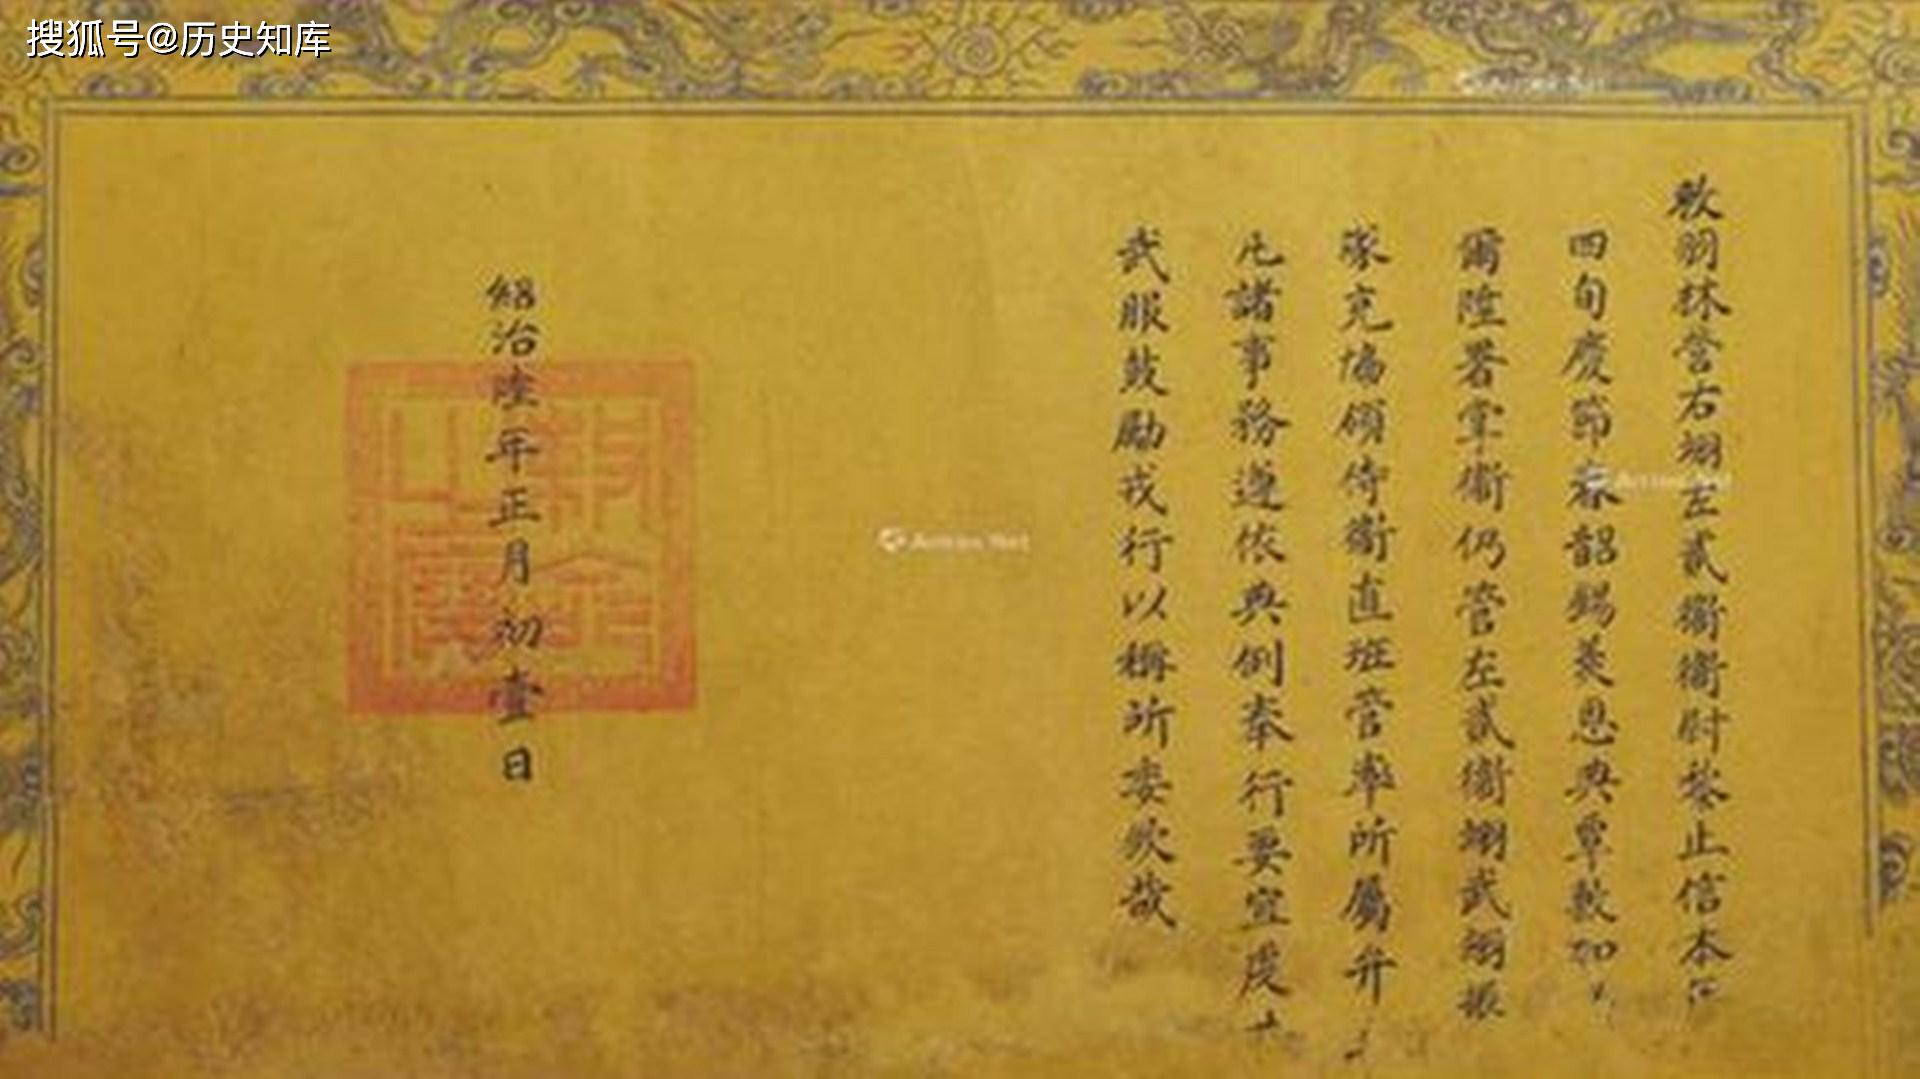 搜狐号@历史知库
敕羽林营右翊左貳衞衞尉黎止信本
四旬慶節春韶錫羨恩典覃敷加
爾陞署掌衞仍管左貳衞翊武翊振
隊充協領侍衞直班管率所屬弁
凡諸事務遵依典例奉行要宜虔
武服鼓勵戎行以稱所委欽哉
紹治陸年正月初壹日
敕命之寶